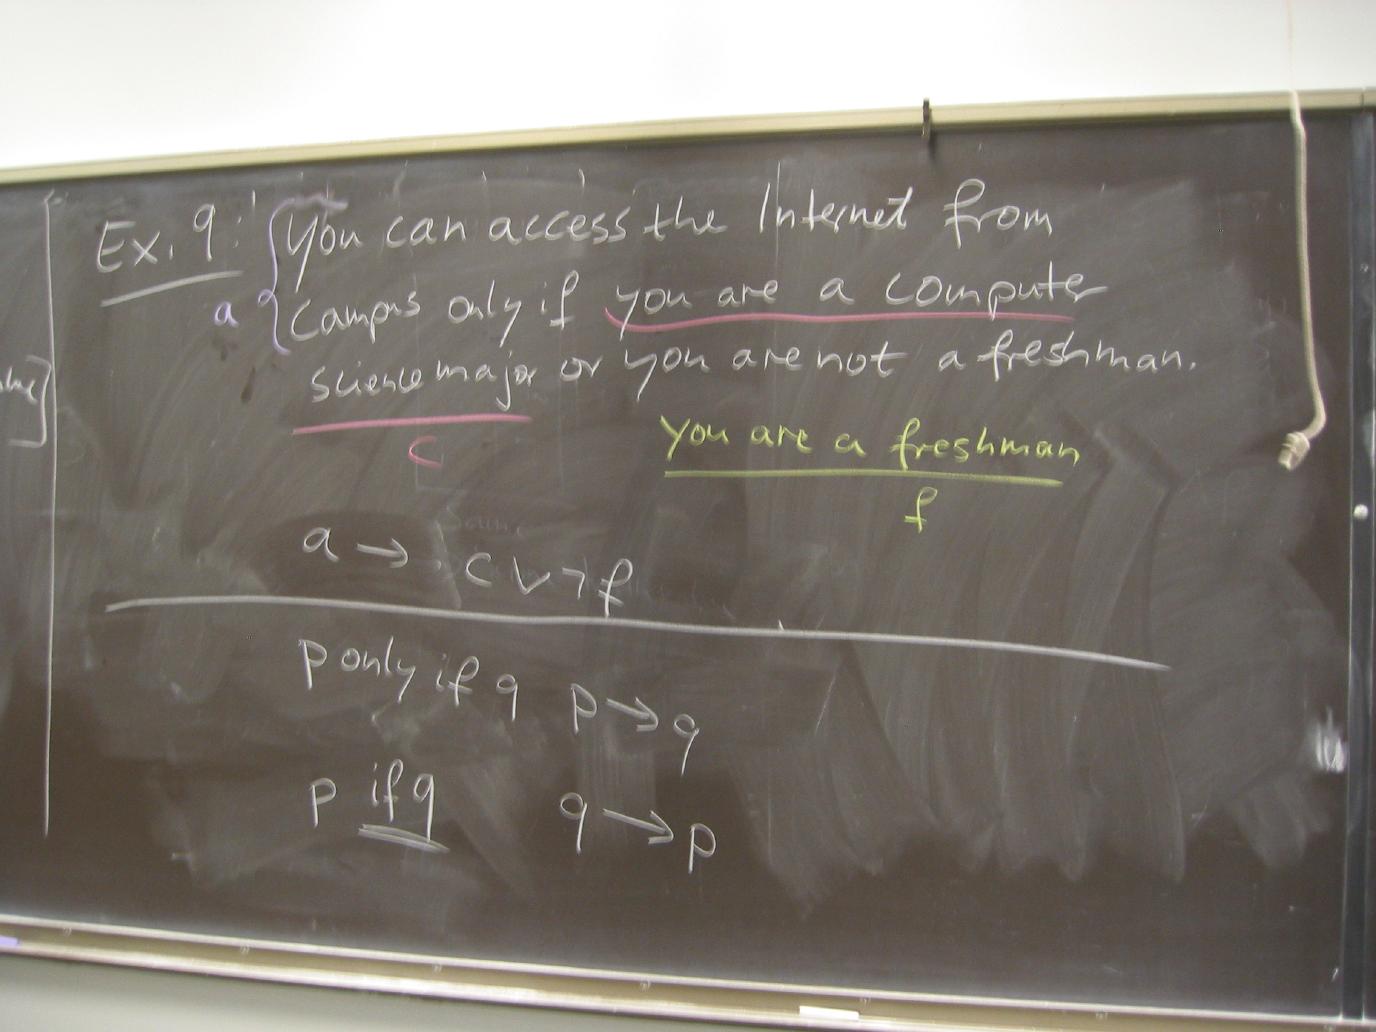 Ex. 9: You can access the Internet from
a campus only if you are a computer
science major or you are not a freshman.
c
you are a freshman
f
a → c ∨ ¬ f
p only if q p → q
p if q q → p